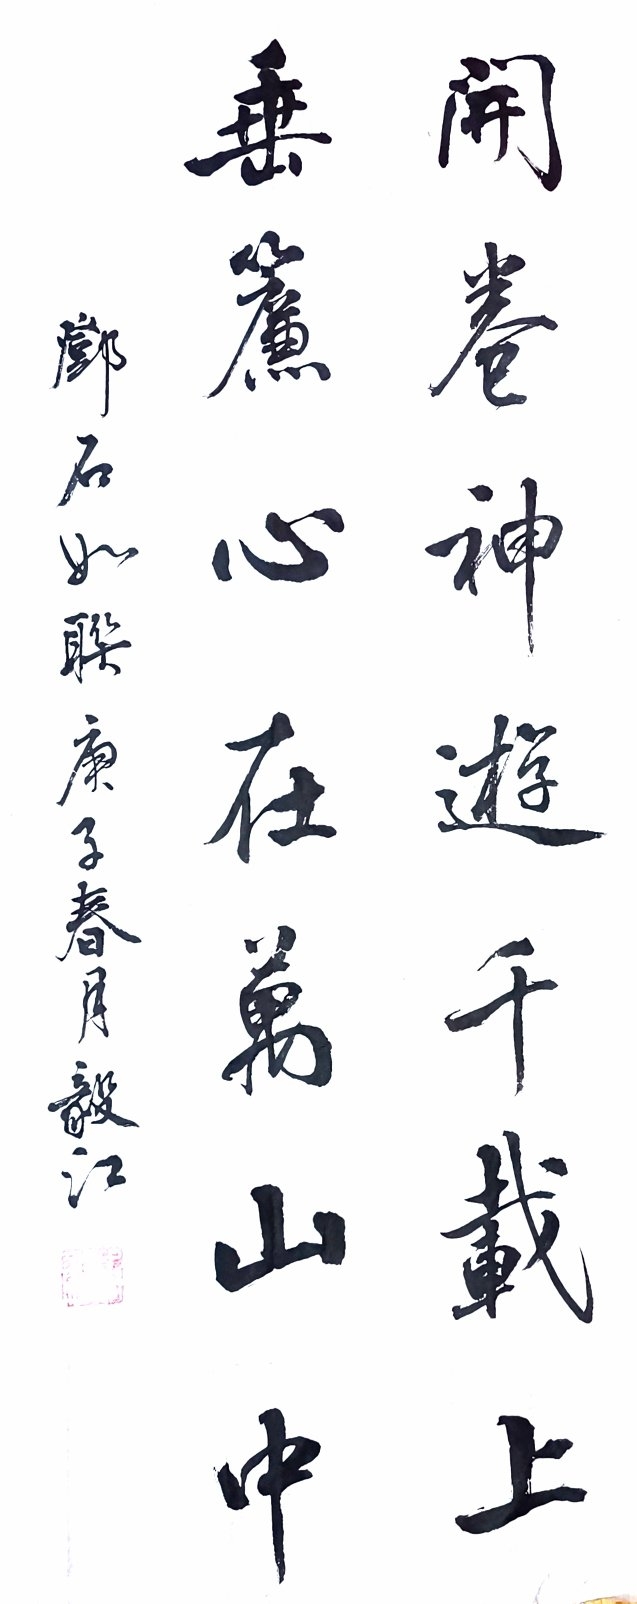 開卷神遊千載上
垂簾心在萬山中
鄧石如聯庚子春月毅江